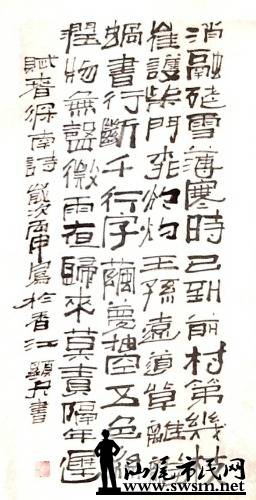 消融殘雪薄寒時已到前村第幾枝
崔護柴門花灼灼王孫遠道草離離
蝸書行斷千行字繭夢抽回五色絲
潤物無聲微雨夜歸來莫責隔年遲
賦春得南詩歲次丙申寫於香江 書
汕尾市民网
www.swsm.net